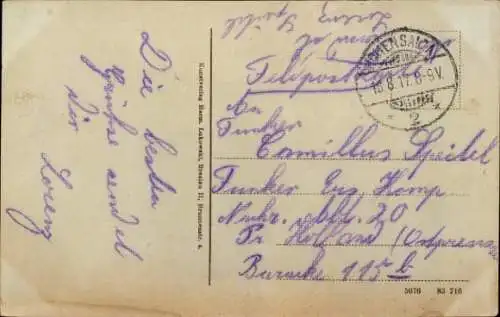 Die besten
Grüsse sendet
Dir
Lorenz
Kunstverlag Herm. Lukowski, Breslau II, Brunnenstr.
Lorenz Speidel
Feldpostkarte
18.8.17. 8-9V.
* 2 *
An
Funker
Camillus Speidel
Funker Ers. Komp
Nachr. Abtl. 20
Pr. Holland (Ostpreus
Baracke 115 b
5076 83 716